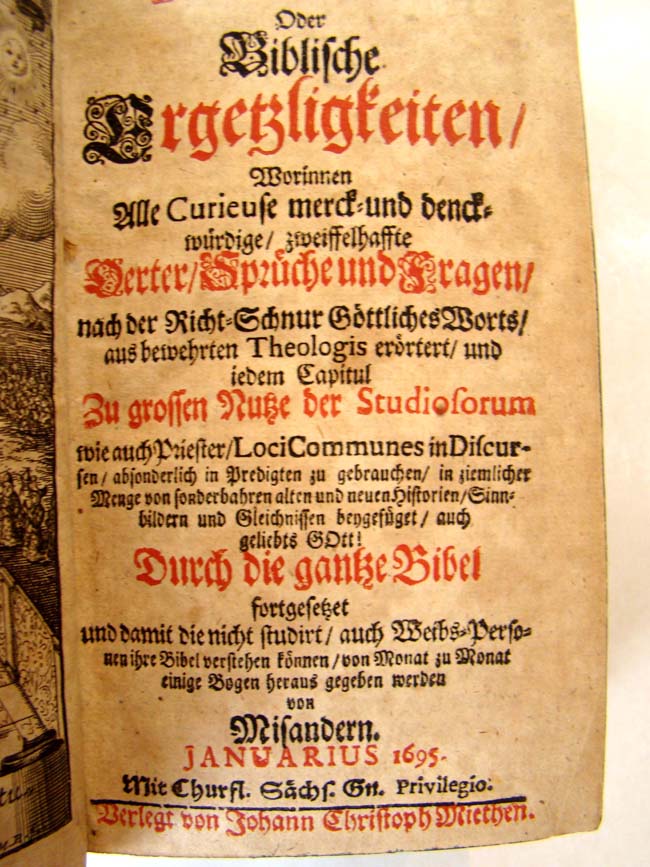 Oder
Biblische
Ergetzligkeiten/
Worinnen
Alle Curieuse merck-und denck-
würdige/ zweiffelhaffte
Oerter/Sprüche und Fragen/
nach der Richt-Schnur Göttliches Worts/
aus bewehrten Theologis erörtert/ und
iedem Capitul
Zu grossen Nutze der Studiosorum
wie auch Priester/ Loci Communes in Discur-
sen/ absonderlich in Predigten zu gebrauchen/ in ziemlicher
Menge von sonderbahren alten und neuen Historien/ Sinn-
bildern und Gleichnissen beygefüget/ auch
geliebts GOtt!
Durch die gantze Bibel
fortgesetzet
und damit die nicht studirt/ auch Weibs-Perso-
nen ihre Bibel verstehen können/ von Monat zu Monat
einige Bogen heraus gegeben werden
von
Misandern.
JANUARIUS 1695.
Mit Churfl. Sächs. Gn. Privilegio.
Verlegt von Johann Christoph Miethen.